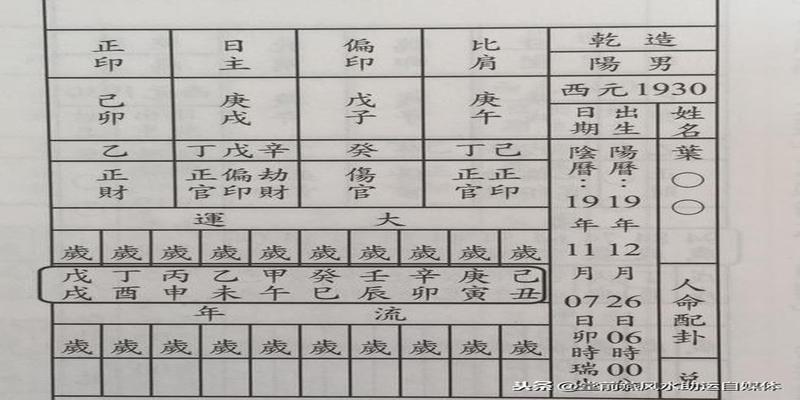 乾造
陽男
西元1930
姓名
葉○○
人命配卦
出生日期
陽曆:1912年12月26日06時00
陰曆:1919年11月07日卯時瑞
比肩
偏印
日主
正印
庚午
戊子
庚戌
己卯
丁己
癸
丁戊辛
乙
正官 正印
傷官
正官 偏印 劫財
正財
大運
歲 歲 歲 歲 歲 歲 歲 歲 歲 歲
己丑 庚寅 辛卯 壬辰 癸巳 甲午 乙未 丙申 丁酉 戊戌
流年
歲 歲 歲 歲 歲 歲 歲 歲 歲 歲
头条